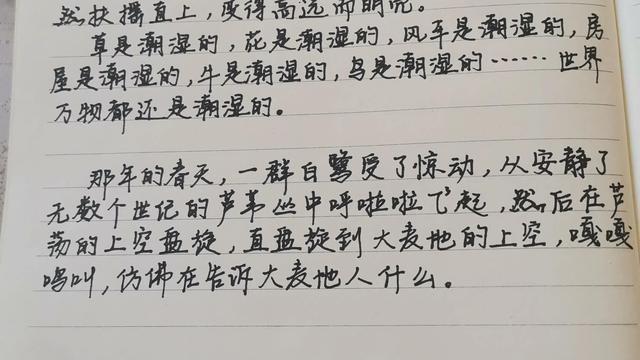 然扶摇直上,变得高远而明亮。
草是潮湿的,花是潮湿的,风车是潮湿的,房
屋是潮湿的,牛是潮湿的,鸟是潮湿的……世界
万物都还是潮湿的。
那年的春天,一群白鹭受了惊动,从安静了
无数个世纪的芦苇丛中呼啦啦飞起,然后在芦
荡的上空盘旋,直盘旋到大麦地的上空,嘎嘎
鸣叫,仿佛在告诉大麦地人什么。